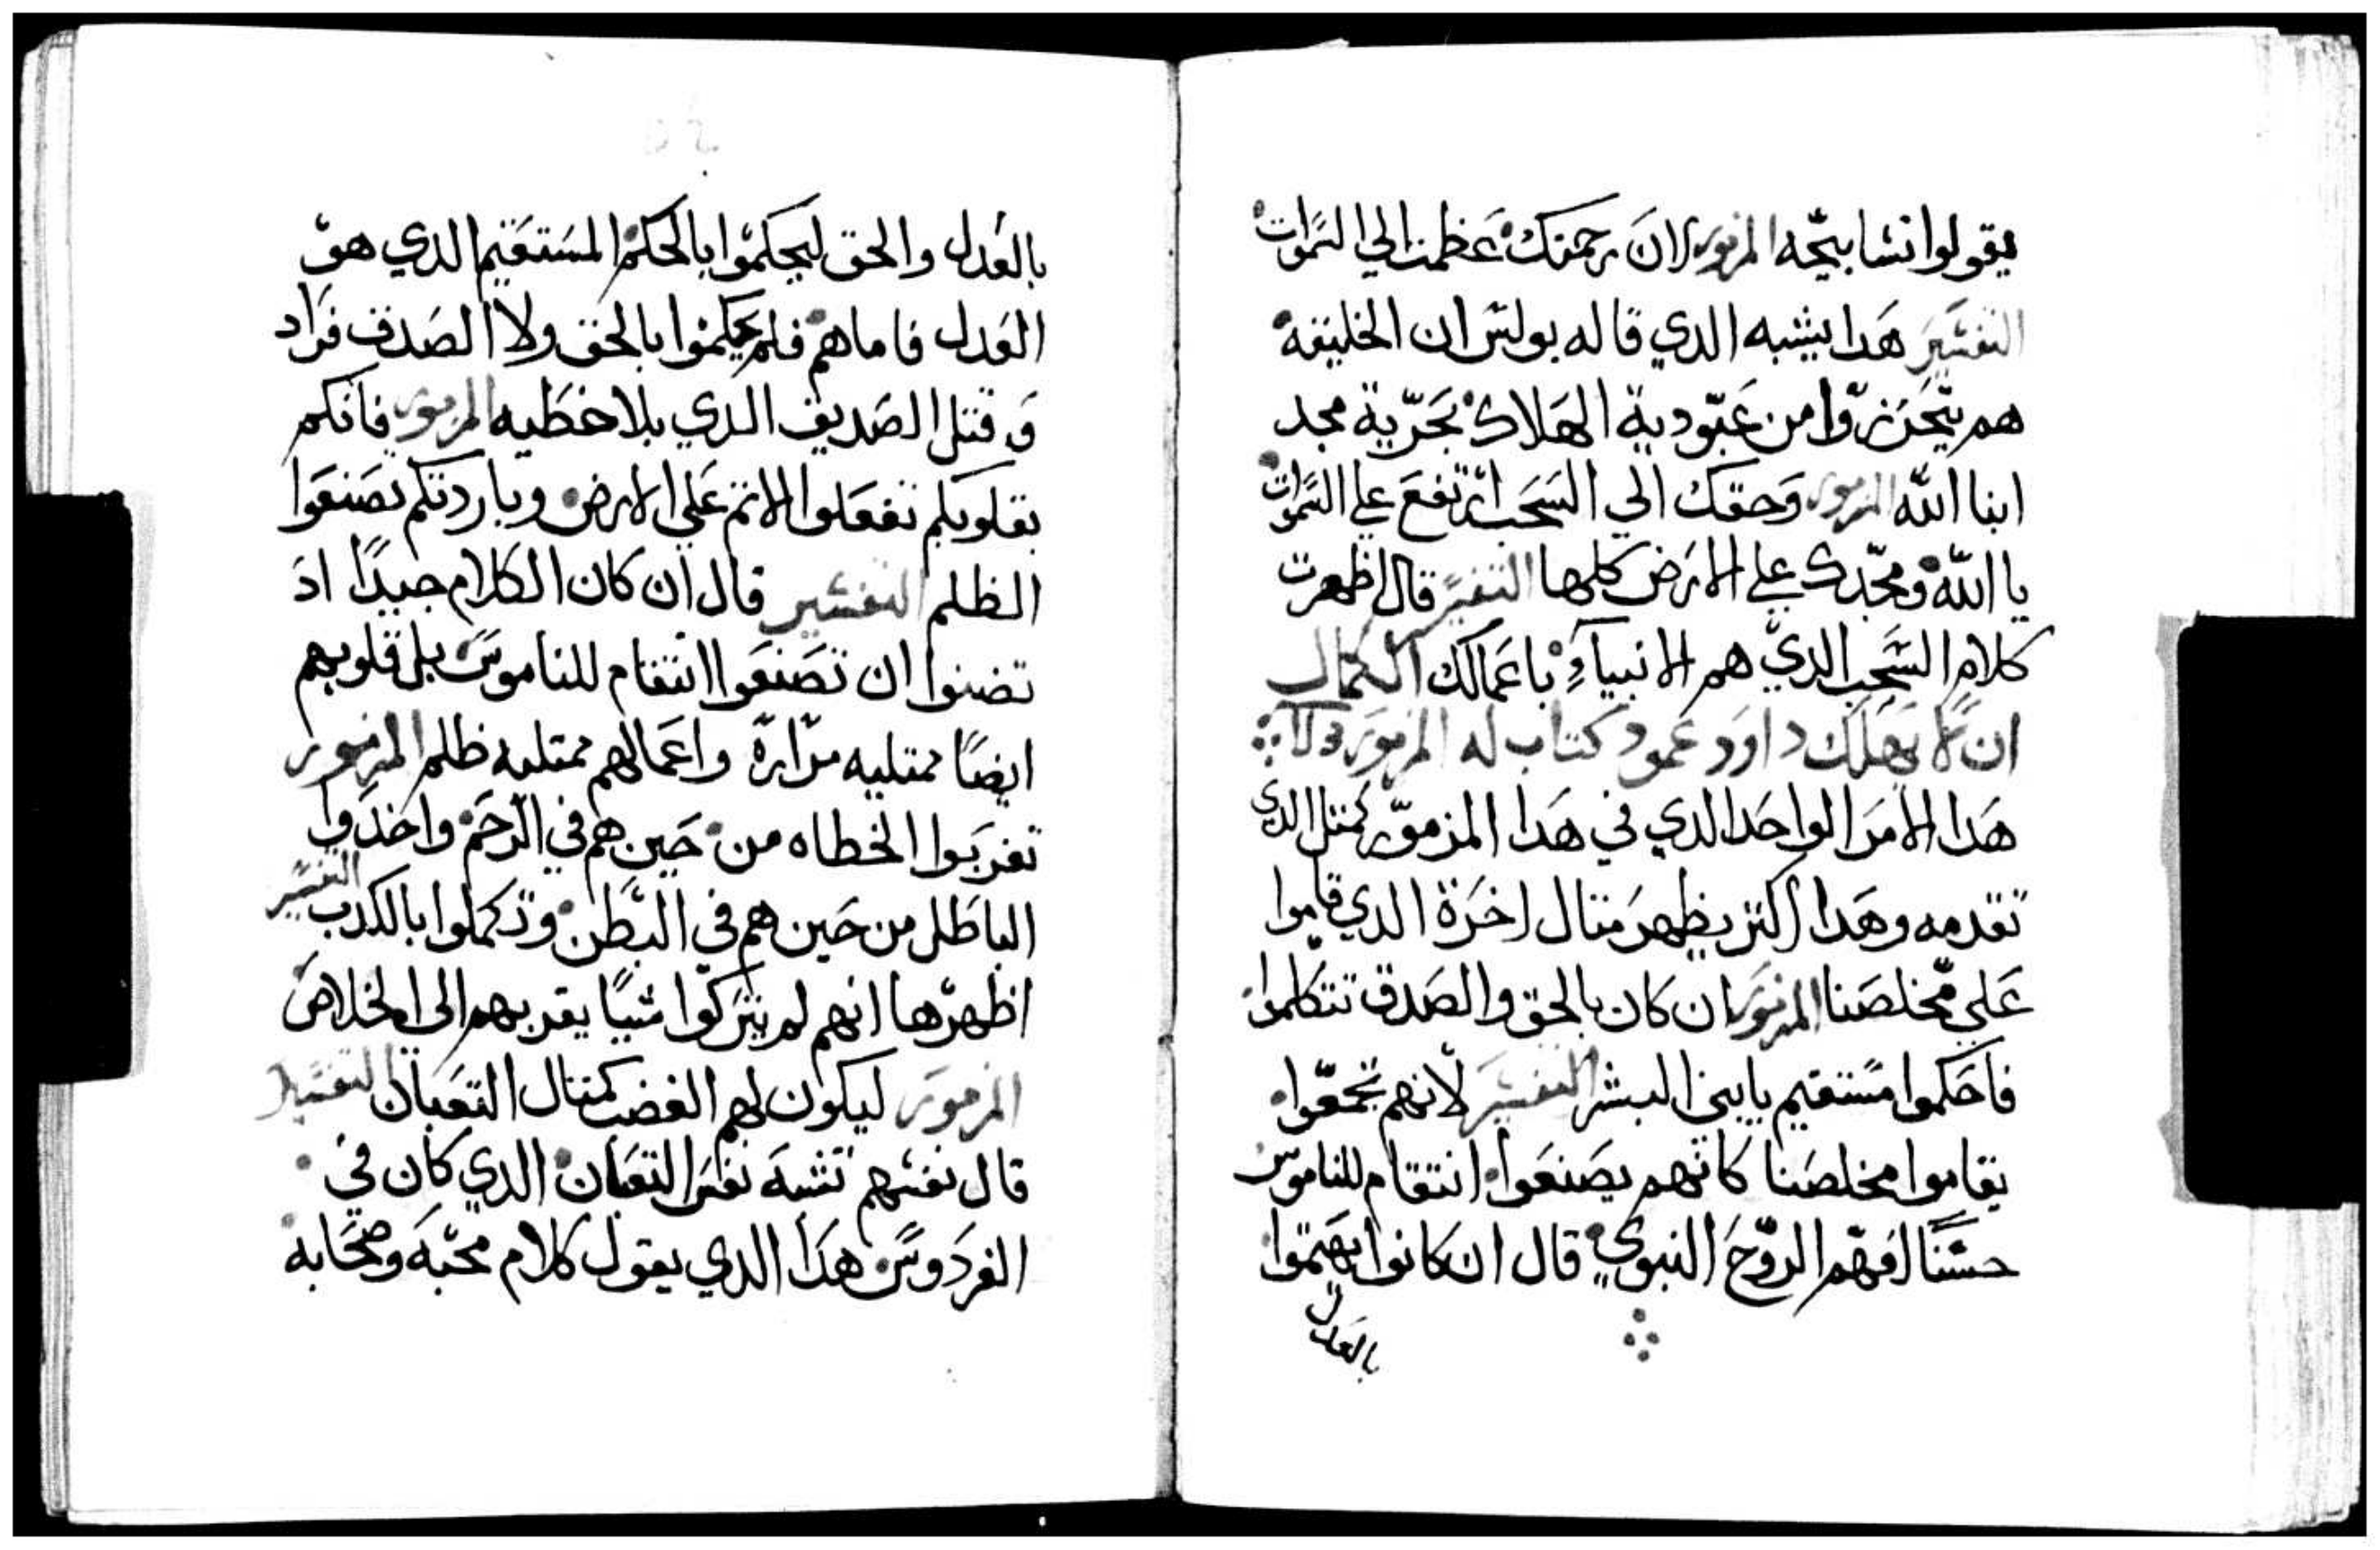 يقولوا نشا بيحّه المزمور لان رحمتك عظمت الي السموات
التفسير هدا يشبه الدي قاله بولس ان الخليقة
هم يتحررّوا من عبّودية الهلاك بحرّية مجد
ابنا الله المزمور وحقك الي السحب ارتفع علي السموات
يا الله ومجّدك علي الارض كلها التفسير قال اظهرت
كلام السحب الدي هم الانبياء باعمالك الكمال
ان لا يهلك داود عمود كتاب له المزمور
هدا الامر الواحد الدي في هدا المزمور كمتل الدي
تقدمه وهدا اكتر يظهر متال اخرة الدي قاموا
علي مخلصنا المزمور ان كان بالحق والصدق تتكلموا
فاحكموا مستقيم يا بني البشر التفسير لانهم تجمعّوا
يقاموا مخلصنا كانهم يصنعوا انتقام للناموس
حسنًا افهم الروّح النبوي قال ان كانوا يهتموا
بالعدل
بالعدل والحق ليحكموا بالحكم المستقيم الدي هو
العدل فاما هم فلم يحكموا بالحق ولا الصدق فراد
و قتل الصديق الدي بلا خطيه المزمور فانكم
بقلوبكم تفعلوا الاتم علي الارض وباردتكم تصنعوا
الظلم التفسير قال ان كان الكلام جيدًا اد
تضنوا ان تصنعوا انتقام للناموس بل قلوبهم
ايضًا ممتليه مرّارة واعمالهم ممتليه ظلم المزمور
تغربوا الخطاه من حين هم في الرحم واخدوا
الباطل من حين هم في البطن وتكملوا بالكدب التفسير
اظهرها انهم لم يتركوا شيًا يقربهم الي الخلاص
المزمور ليكون لهم الغضب كمتال التعبان التفسير
قال نفسهم تشبه نفس التعبان الدي كان في
الفردوس هدا الدي يقول كلام محبّه وصحابه